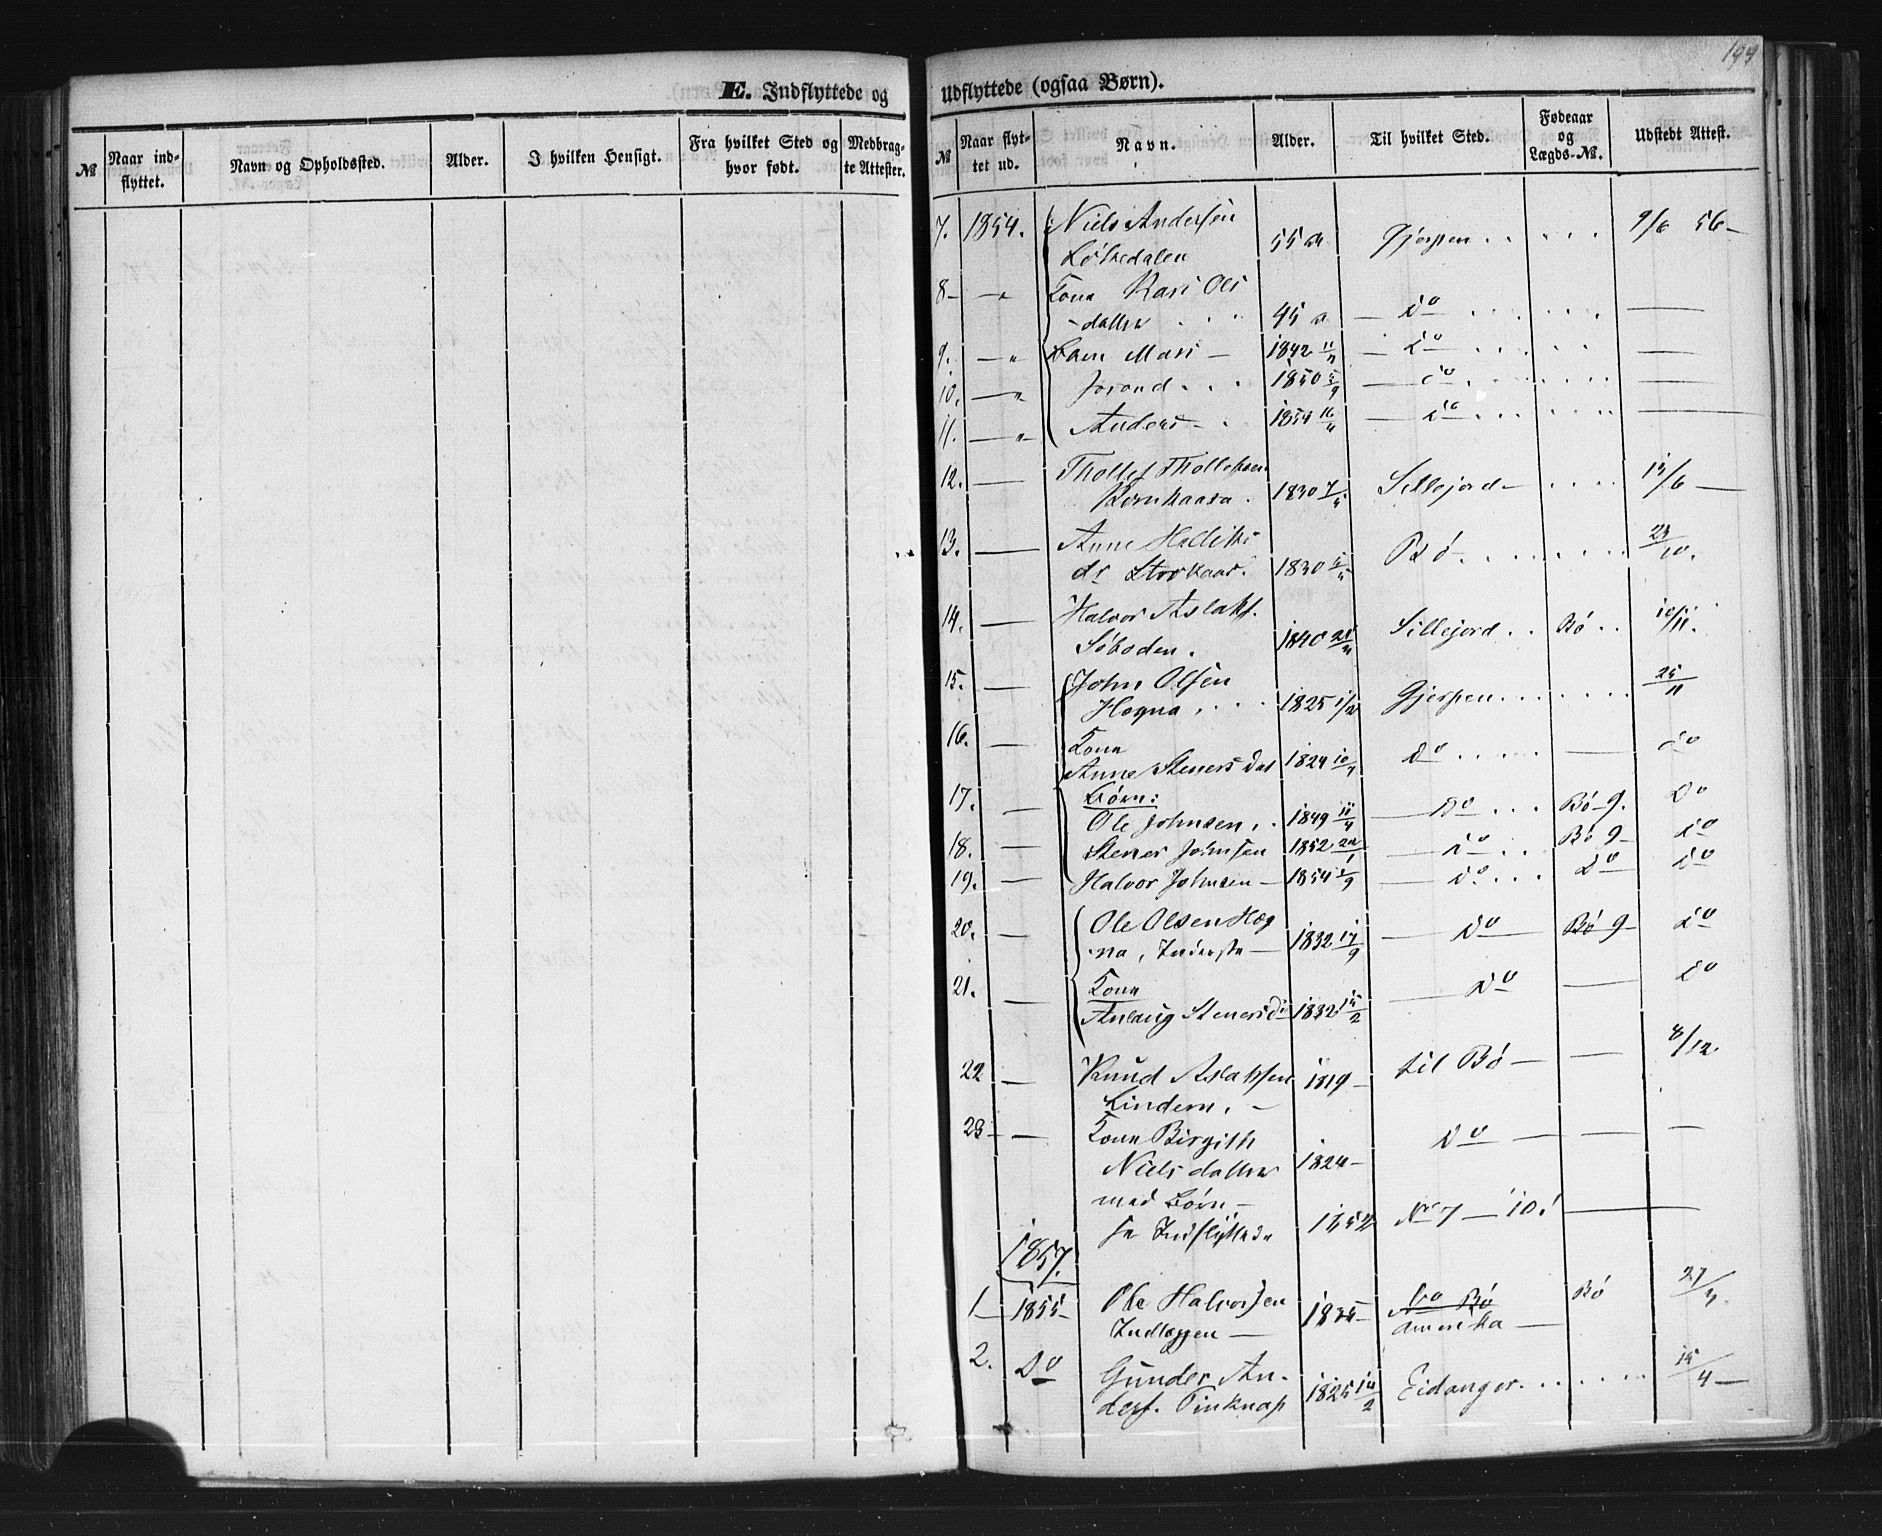 199
E. Indflyttede og
№
Naar ind-
flyttet.
Navn og Opholdssted.
Alder.
I hvilken Hensigt.
Fra hvilket Sted og
hvor født.
Medbrag-
te Attester.
Udflyttede (ogsaa Børn).
№
Naar flyt-
tet ud.
Navn.
Alder.
Til hvilket Sted.
Fødeaar
og
Lægds-№.
Udstedt Attest.
7. 1854. Niels Andersen 55 Gjerpen . . . . . 9/6 56 —
8 — Kone Kari Ols
-datter . . . 45 — do . . . . . —
9. — " Barn Mari — 1842 — do . . . . . —
10. — " Jorand . . . 1850 5/9 — do . . . . . —
11. — " Anders — . 1854 — do . . . . . —
12. — Thollef Thollefsen
1830 Sillejord — . . . . 13/6 —
13. — Anne
1830 Bø — . . . . . . 23/10.
14. — Halvor Aslaks.
Søboden. 1840 Sillejord . . Bø . . 10/11.
15. — John Olsen
Hogna . . . . 1825 1/2 Gjerpen . . . . . . . 25/11
16. — Kone
Anne Steners Dat 1824 do . . . . — do
17. — Børn:
Ole Johnsen . . 1849 11/4 — do . . . Bø 9. do
18. — Stener Johnsen 1852 — do . . Bø 9 — do
19. — Halvor Johnsen — 1854 — do . . . do do
20. — Ole Olsen Hog
na, Inderste — 1832 17/9 — do — Bø 9 — do
21. — Kone
Anlaug Stenersd 1832 15/2 — do — do
22 — Knud Aslaksen 1819 — til Bø — — 8/12
Lindem. —
23 — — Kone Birgith do — — —
Niels datter 1824 —
med Børn —
se Indflyttede 1852 No 7 — 10. —
1857.
1 — 1855 — Ole Halvorsen 1835 — do Bø Bø 27/3.
— Amerika —
2. do Gunder An-
ders. Tinknap 1825 Eidanger . . . . . . 15/4 —